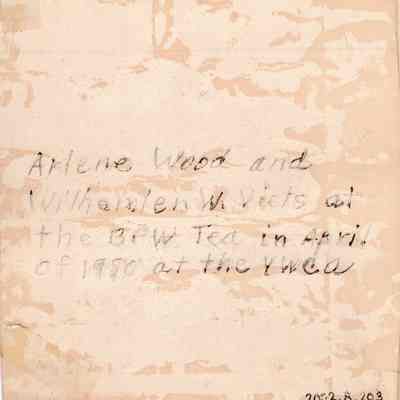 Arlene Wood and
Wilhemlen W. Viets at
the BPW Tea in April
of 1980 at the YWCA
2002.8.203